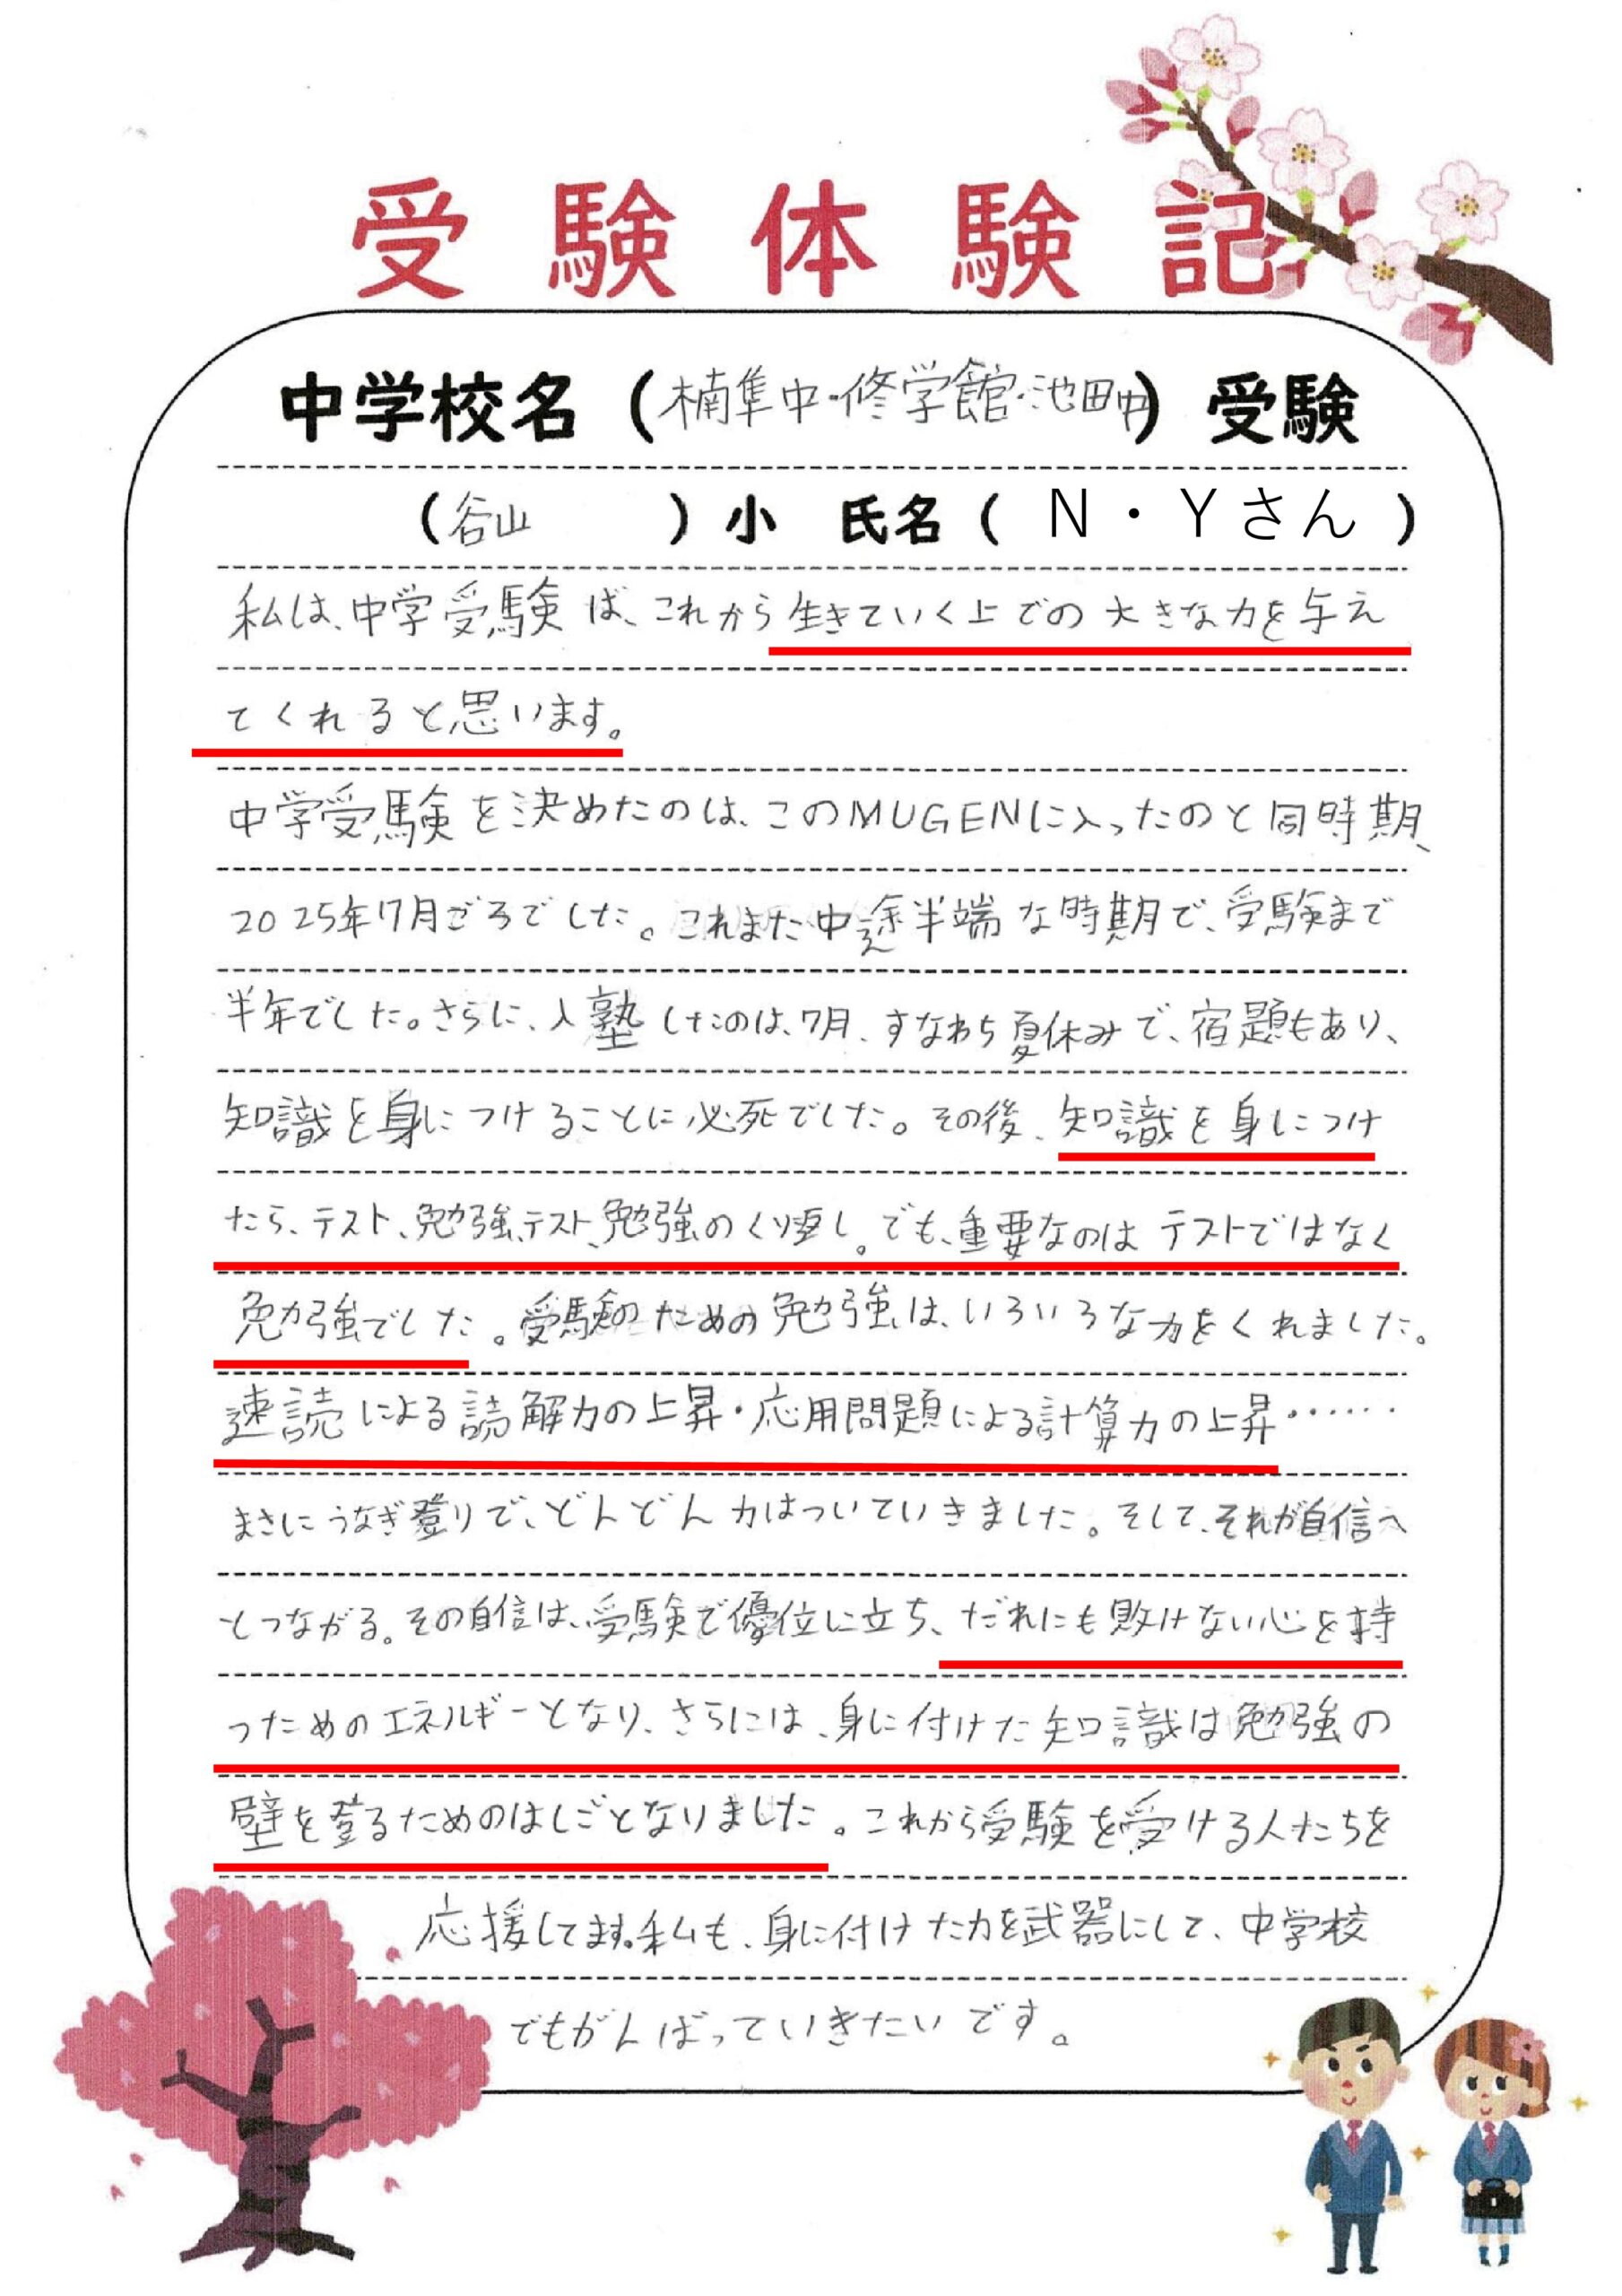 受験体験記
中学校名（楠隼中・修学館・池田中）受験
（谷山　　）小　氏名（ N・Yさん ）
私は、中学受験は、これから生きていく上での大きな力を与え
てくれると思います。
中学受験を決めたのは、このMUGENに入ったのと同時期、
2025年7月ごろでした。これまた中途半端な時期で、受験まで
半年でした。さらに、入塾したのは、7月、すなわち夏休みで、宿題もあり、
知識を身につけることに必死でした。その後、知識を身につけ
たら、テスト、勉強、テスト、勉強のくり返し。でも、重要なのはテストではなく
勉強でした。受験のための勉強は、いろいろな力をくれました。
速読による読解力の上昇・応用問題による計算力の上昇……
まさにうなぎ登りで、どんどん力はついていきました。そして、それが自信へ
とつながる。その自信は、受験で優位に立ち、だれにも敗けない心を持
つためのエネルギーとなり、さらには、身に付けた知識は勉強の
壁を登るためのはしごとなりました。これから受験を受ける人たちを
応援してます。私も、身に付けた力を武器にして、中学校
でもがんばっていきたいです。